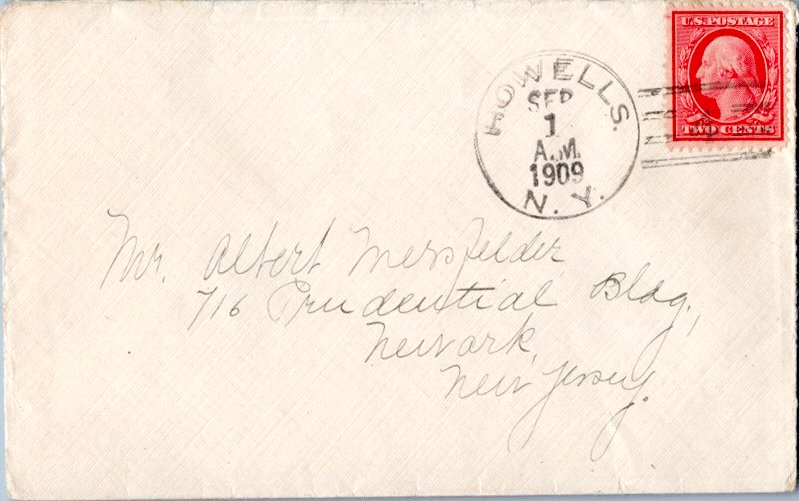 U.S. POSTAGE
TWO CENTS
HOWELLS.
SEP
1
A.M.
1909
N. Y.
Mr. Albert Mersfelder,
716 Prudential Bldg.,
Newark,
New Jersey.